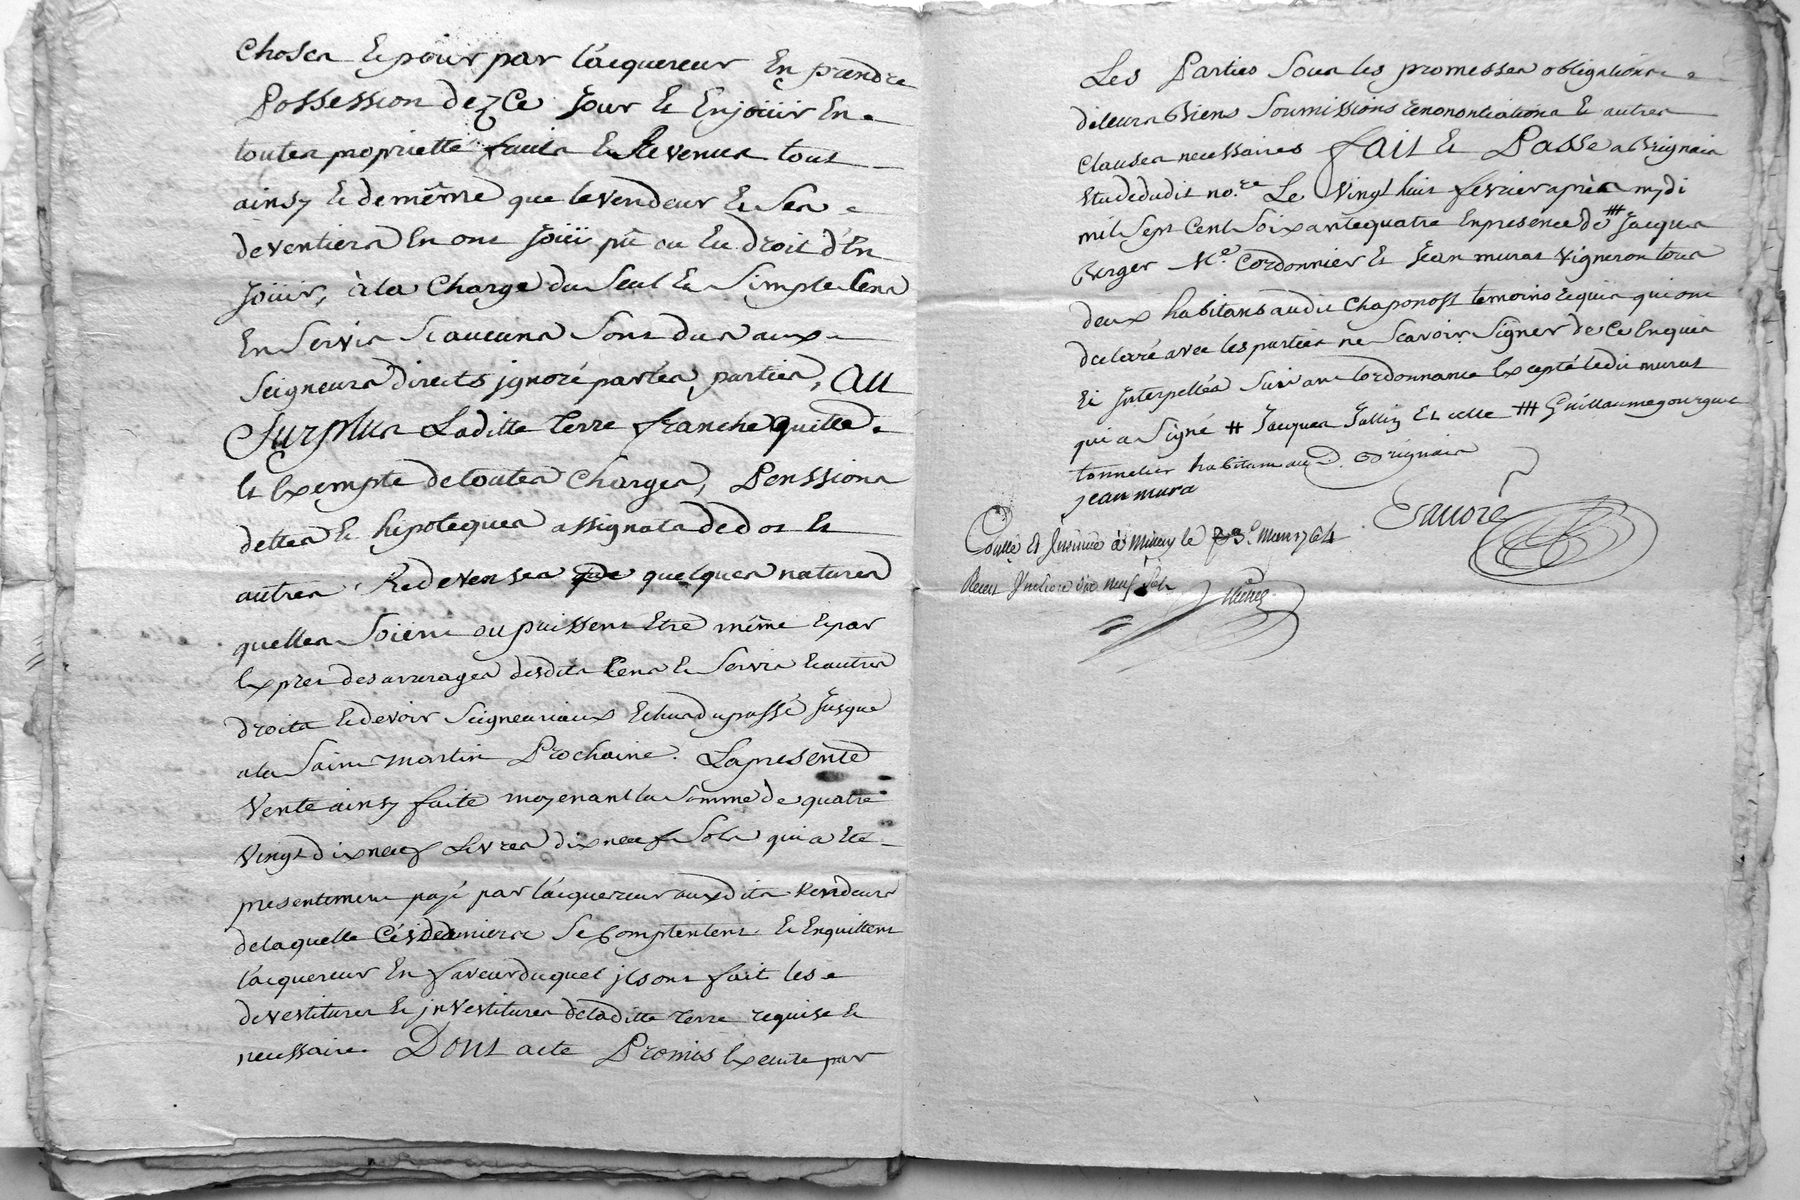 choses Et pour par l'acquereur En prendre
Possession dez Ce Jour Et Enjoüir En
toutes propriette fruits Et Revenus tout
ainsy Et demême que le vendeur Et Ses
deventiers En ont Joüi pû ou Eu droit d'En
Joüir, à la Charge du Seul Et Simple Cens
En Servis Si aucuns Sont dus aux
Seigneurs directs jgnoré par les parties, Au
Surplus Laditte terre franche quitte
Et Exempte de toutes Charges, Penssions
dettes Et hipoteques assignats de dot Et
autres Redevenses de quelques natures
quelles Soient ou puissent Etre même Et par
Exprès des arrerages desdits Cens Et Servis Et autres
droits Et devoir Seigneuriaux Echus du passé Jusque
a la Saint martin Prochaine. La presente
Vente ainsy faite moyenant la Somme de quatre
Vingt dix neuf Livres dix neuf Sols qui a Eté
presentement payé par l'acquereur auxdits Vendeurs
de laquelle Ces derniers Se Comptentent Et Enquittent
l'acquereur En faveur duquel jls ont fait les
devestitures Et jnvestitures de laditte terre requise Et
necessaire. Dont acte Promis Execute par
Les Parties Sous les promesses obligations
de leurs Biens Soumissions renonontiations Et autres
Clauses necessaires fait Et Passé a Brignais
Etude dudit no.re Le Vingt huit fevrier après mydi
mil Sept Cent Soixante quatre En presence de # Jacques
Berger M.e Cordonnier Et Jean muras Vigneron tous
deux habitans audit Chaponost temoins requis qui ont
declaré avec les parties ne Scavoir Signer de Ce Enquis
Et Jnterpellés Suivant l'ordonnance Excepté ledit muras
qui a Signé # Jacques Et celle # Guillaume gourgue
tonnelier habitant au D. Brignais
jean mura
Coullé Et Jnsinué à Millery le 3.e Mars 1764
Receu dix neuf Sols